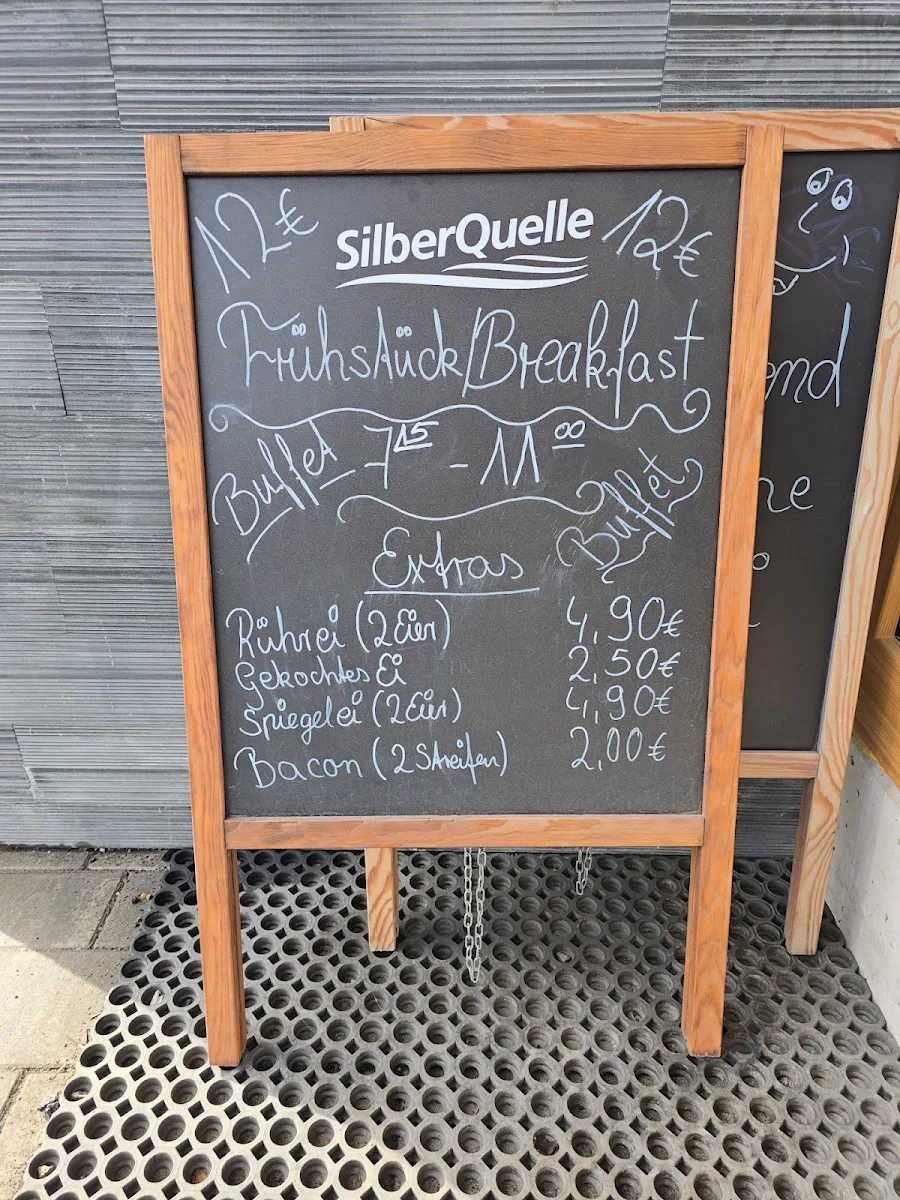 12€ SilberQuelle 12€
Frühstück/Breakfast
Buffet 7 15 - 11 00 Buffet
Extras
Rührei (2 Eier) 4,90€
Gekochtes Ei 2,50€
Spiegelei (2 Eier) 4,90€
Bacon (2 Streifen) 2,00€